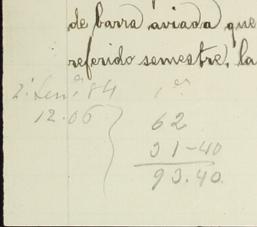 de barra aviada que
referido semestre, la
2º Sem. 84 1º
12.06 62
31-40
93.40